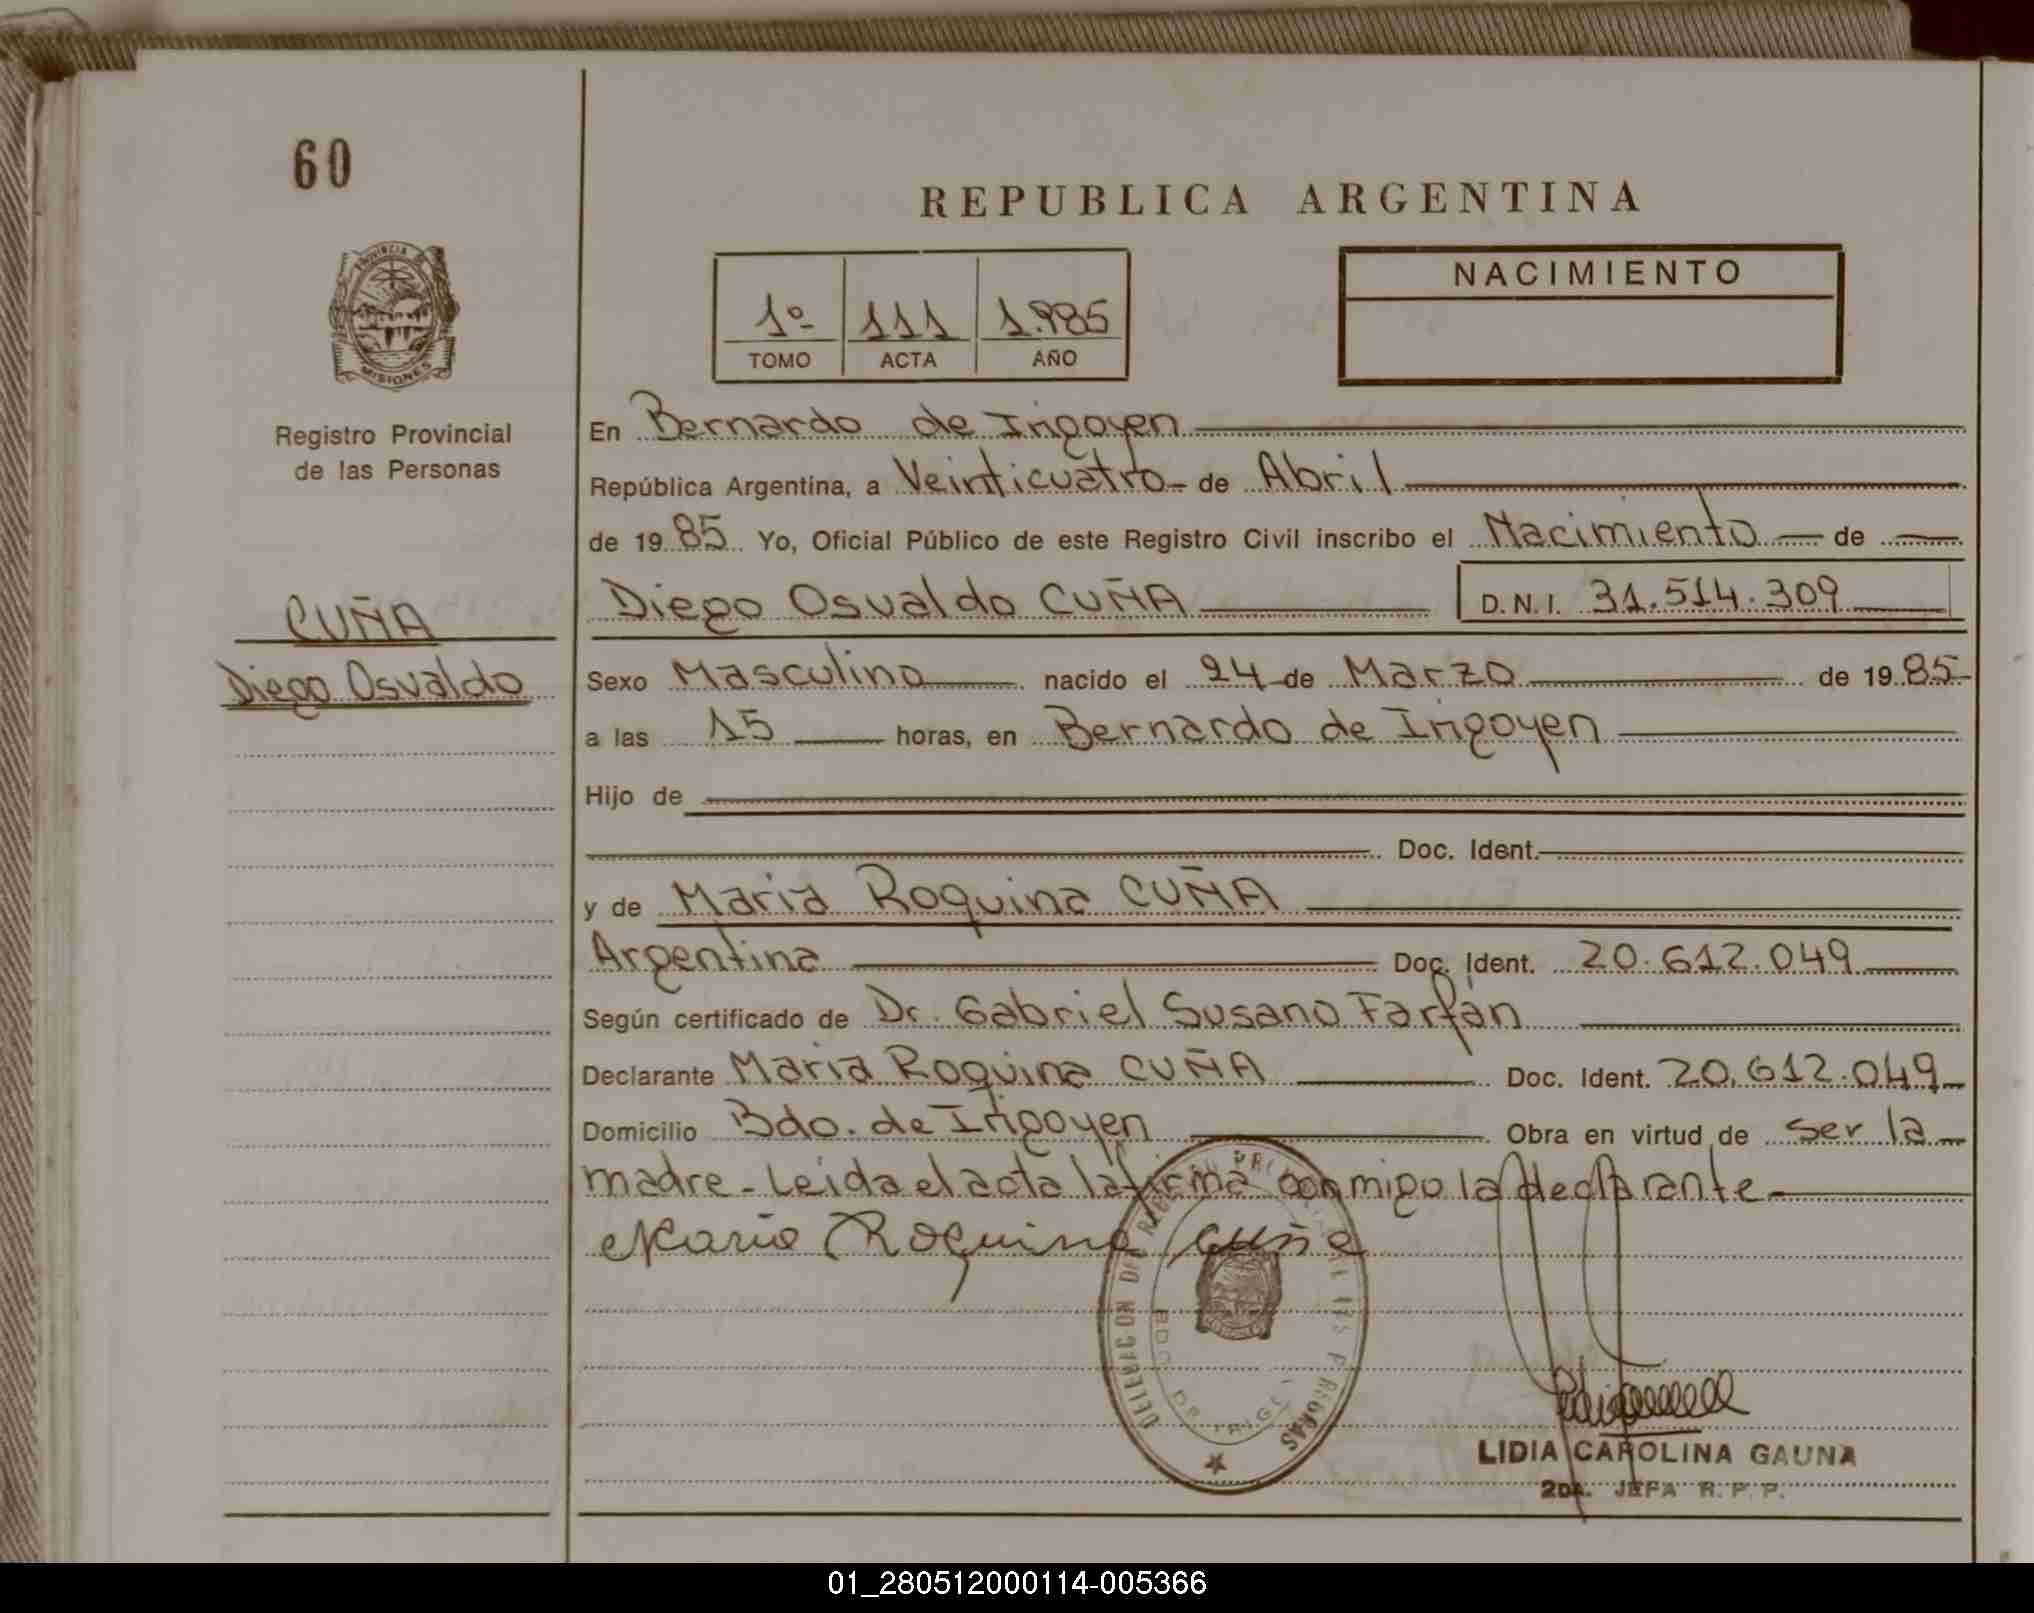 60
REPUBLICA ARGENTINA
PROVINCIA DE
MISIONES
1º 111 1.985
TOMO ACTA AÑO
NACIMIENTO
Registro Provincial
de las Personas
En Bernardo de Irigoyen
República Argentina, a Veinticuatro de Abril
de 1985 Yo, Oficial Público de este Registro Civil inscribo el Nacimiento de
CUÑA
Diego Osvaldo
Diego Osvaldo CUÑA D.N.I. 31.514.309
Sexo Masculino nacido el 24 de Marzo de 1985
a las 15 horas, en Bernardo de Irigoyen
Hijo de
Doc. Ident.
y de Maria Roquina CUÑA
Argentina Doc. Ident. 20.612.049
Según certificado de Dr. Gabriel Susano Farfán
Declarante Maria Roquina CUÑA Doc. Ident. 20.612.049
Domicilio Bdo. de Irigoyen Obra en virtud de ser la
madre - Leida el acta la firma conmigo la declarante
Maria Roquina Cuña
LIDIA CAROLINA GAUNA
2DA. JEFA R.P.P.
01_280512000114-005366